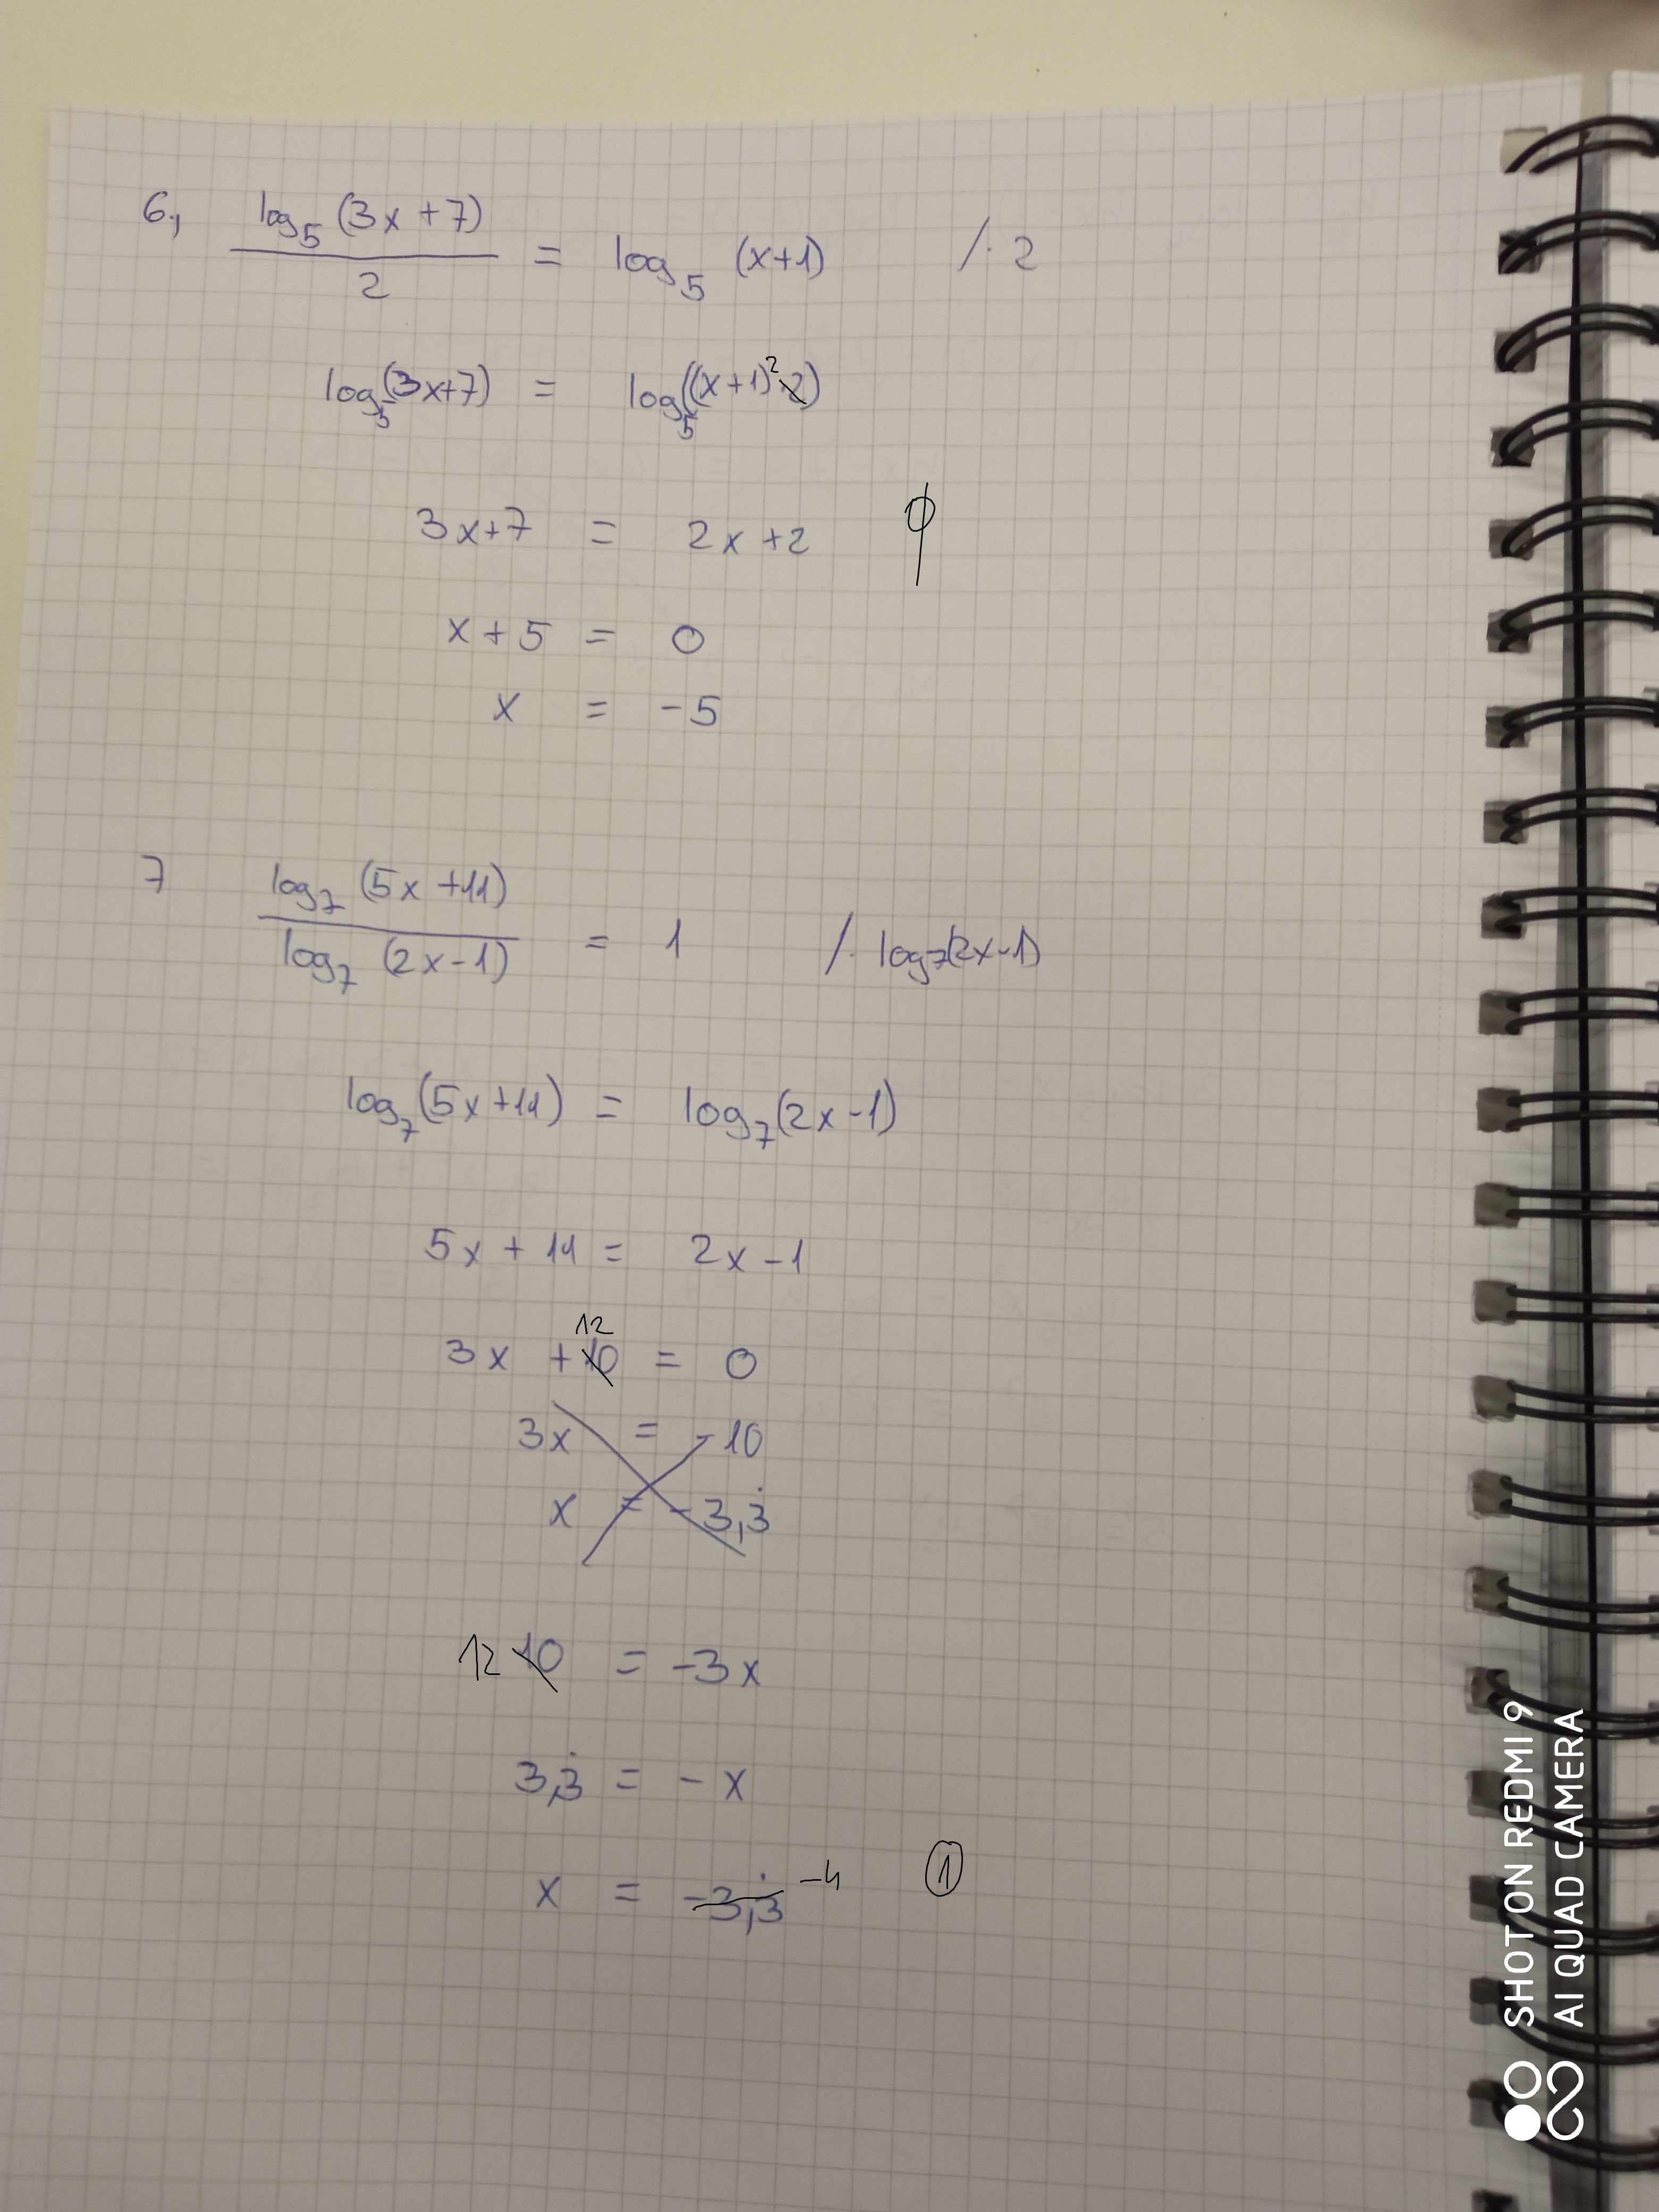 6., log₅ (3x+7) / 2 = log₅ (x+1) /·2
log₅(3x+7) = log₅((x+1)² 2)
3x+7 = 2x+2 ϕ
x+5 = 0
x = -5
7 log₇ (5x+11) / log₇ (2x-1) = 1 /· log₇(2x-1)
log₇(5x+11) = log₇(2x-1)
5x + 11 = 2x - 1
12
3x + 10 = 0
3x = -10
x = -3,3̇
12 10 = -3x
3,3̇ = -x
x = -3,3̇ -4 ①
SHOT ON REDMI 9
AI QUAD CAMERA